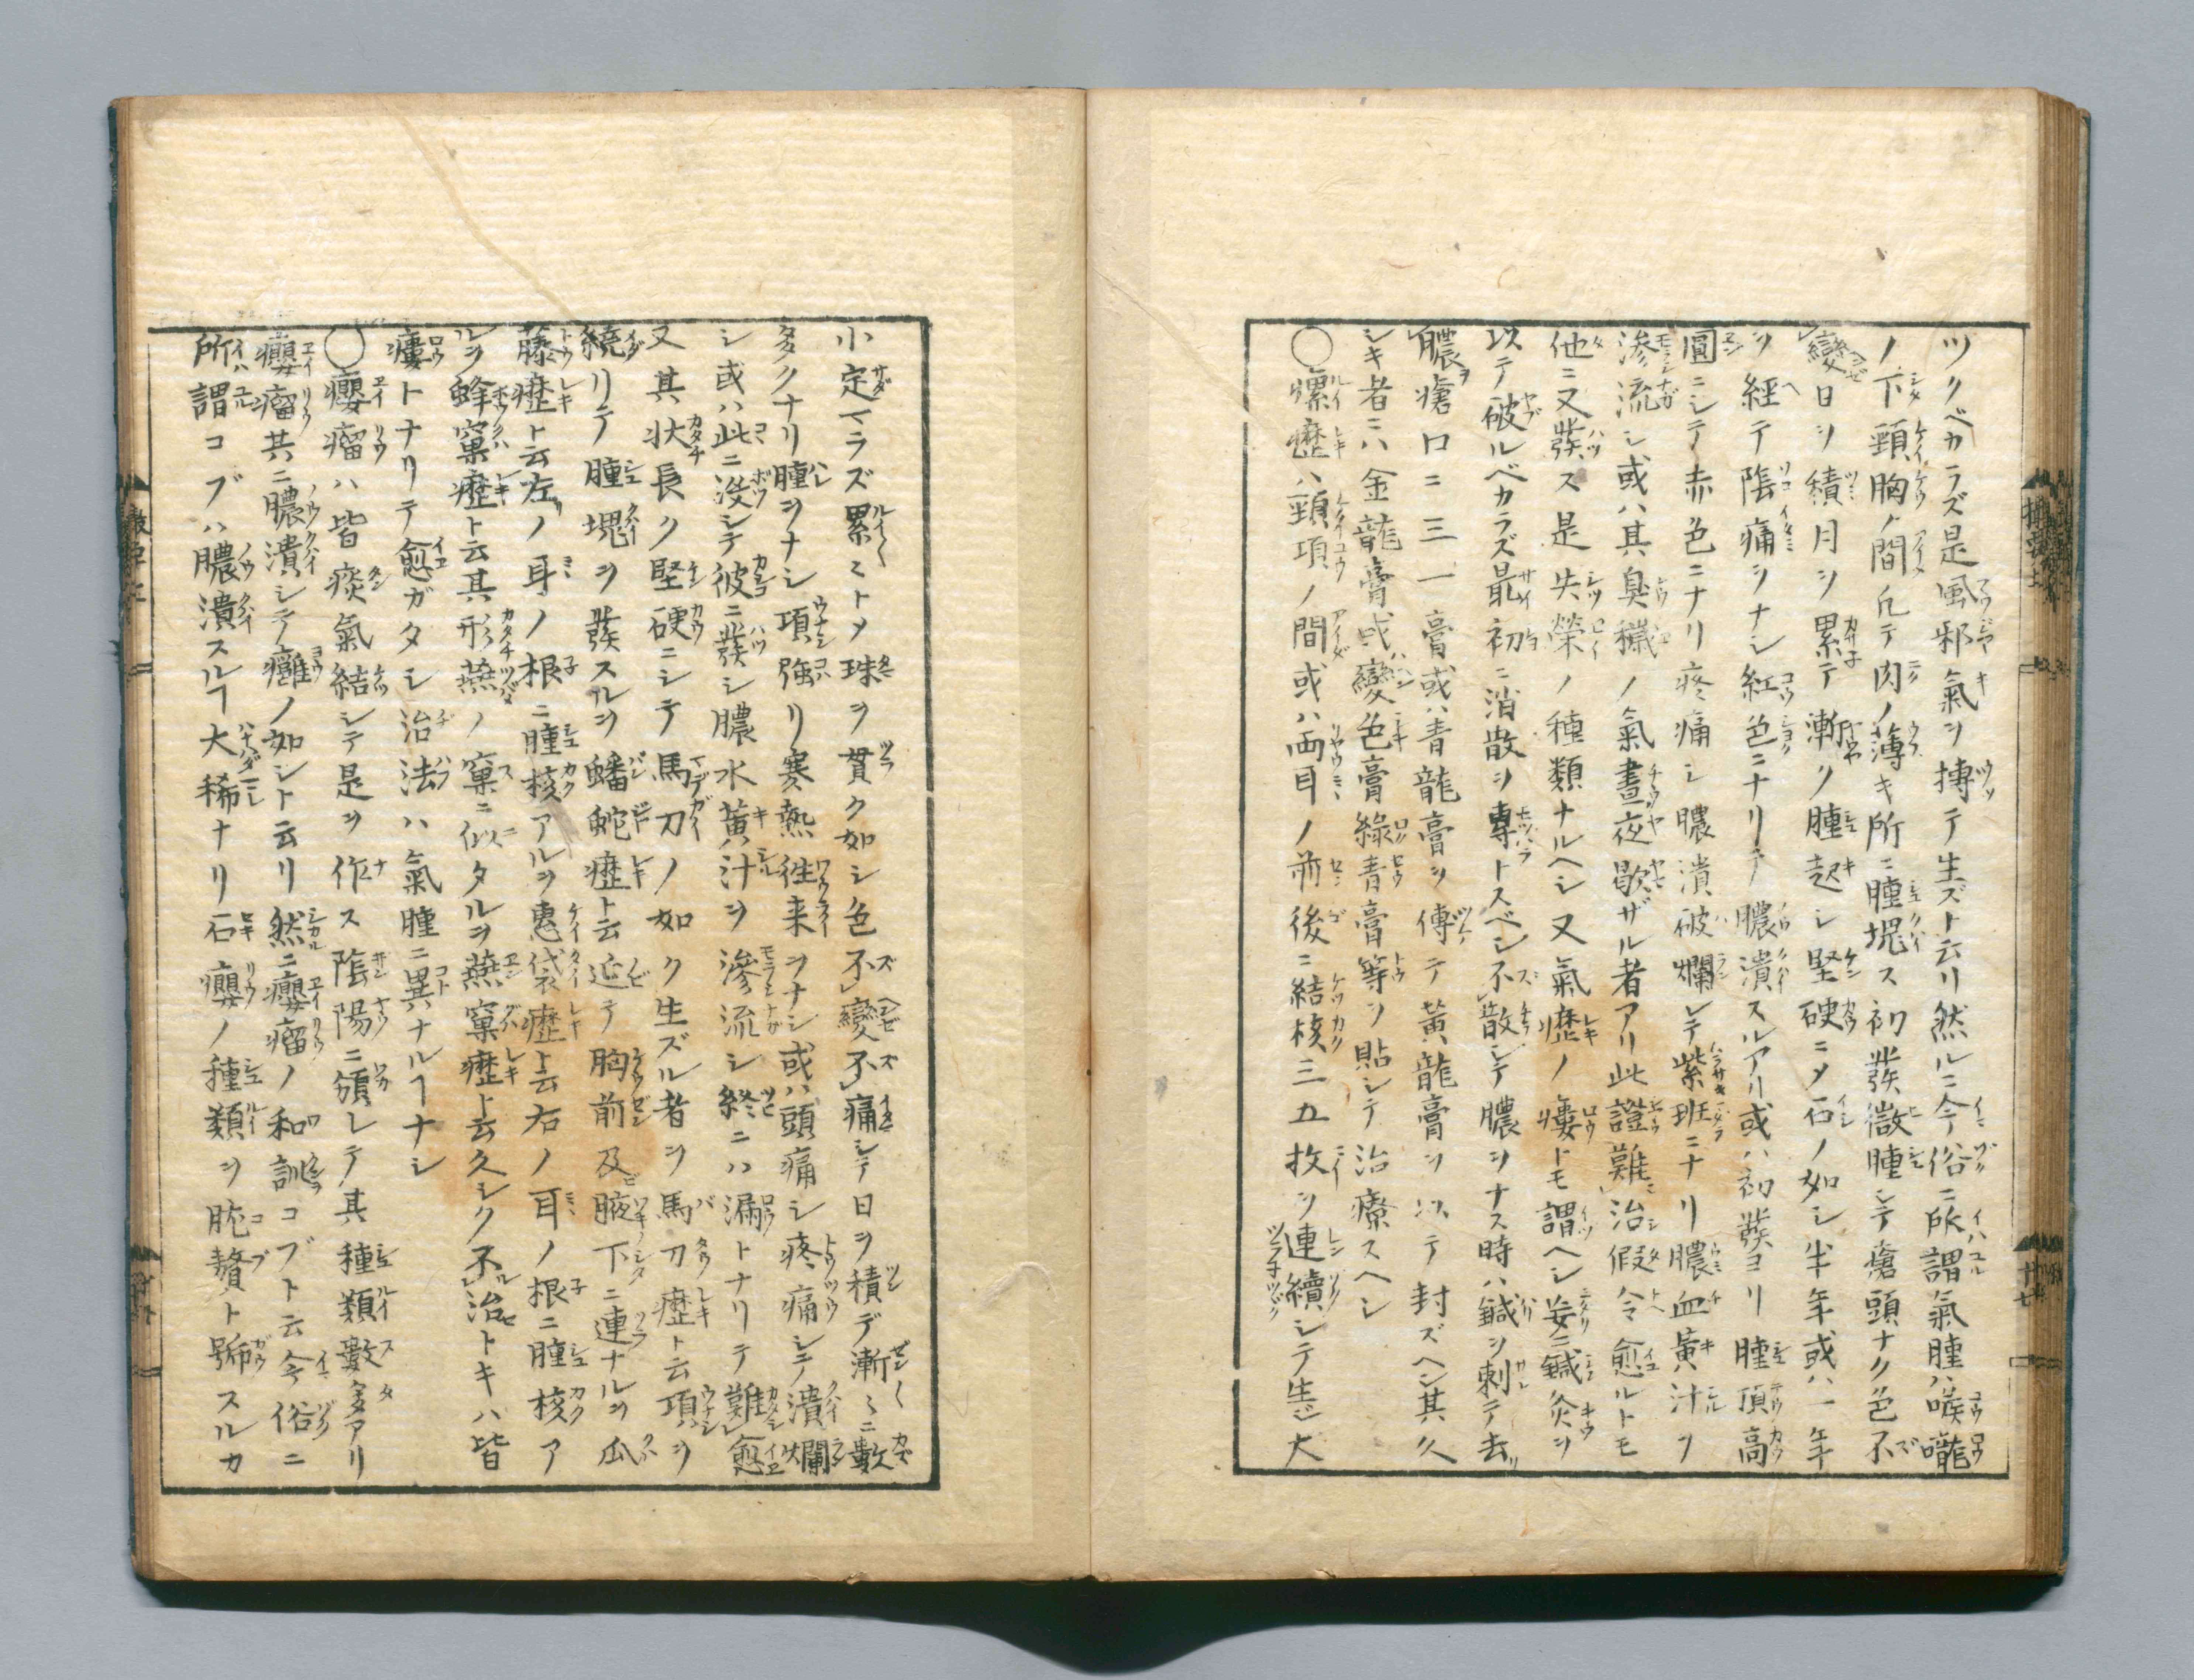 ツクベカラズ是風邪氣ヲ搏テ生ズト云リ然ルニ今俗ニ所謂氣腫ハ喉嚨
ノ下頸胸ノ間凡テ肉ノ薄キ所ニ腫塊ス初發微腫シテ瘡頭ナク色不
變日ヲ積月ヲ累テ漸ク腫起シ堅硬ニメ石ノ如シ半年或ハ一年
ヲ經テ陰痛ヲナシ紅色ニナリテ膿潰スルアリ或ハ初發ヨリ腫頂高
圓ニシテ赤色ニナリ疼痛シ膿潰破爛レテ紫班ニナリ膿血黄汁ヲ
滲流シ或ハ其臭穢ノ氣晝夜歇ザル者アリ此證難治假令愈ルトモ
他ニ又發ス是失榮ノ種類ナルヘシ又氣瘞ノ瘻トモ謂ヘシ妄ニ鍼灸ヲ
以テ破ルベカラズ最初ニ消散ヲ專トスベシ不散シテ膿ヲナス時ハ鍼ヲ刺テ去
膿瘡口ニ三一膏或ハ青龍膏ヲ傅テ黄龍膏ヲ以テ封ズヘシ其久
シキ者ニハ金龍膏或變色膏綠青膏等ヲ貼シテ治療スヘシ
〇瘰癧ハ頸項ノ間或ハ両耳ノ前後ニ結核三五枚ヲ連續シテ生ジ大
小定マラズ累〻トメ珠ヲ貫ク如シ色不變不痛シテ日ヲ積デ漸〻ニ數
多クナリ腫ヲナシ項強リ寒熱往来ヲナシ或ハ頭痛シ疼痛シテ潰爛
シ或ハ此ニ没シテ彼ニ發シ膿水黄汁ヲ滲流シ終ニハ漏トナリテ難愈
又其状長ク堅硬ニシテ馬刀ノ如ク生ズル者ヲ馬刀癧ト云項ヲ
繞リテ腫塊ヲ發スルヲ蟠蛇癧ト云近テ胸前及腋下ニ連ナルヲ瓜
藤癧ト云左ノ耳ノ根ニ腫核アルヲ惠袋癧ト云右ノ耳ノ根ニ腫核ア
ルヲ蜂窠癧ト云其形燕ノ窠ニ似タルヲ燕窠癧ト云久シク不治トキハ皆
瘻トナリテ愈ガタシ治法ハ氣腫ニ異ナルヿナシ
〇癭瘤ハ皆痰氣結シテ是ヲ作ス陰陽ニ領レテ其種類數多アリ
癭瘤共ニ膿潰シテ癰ノ如シト云リ然ニ癭瘤ノ和訓コブト云今俗ニ
所謂コブハ膿潰スルヿ大稀ナリ石癭ノ種類ヲ肬贅ト號スルカ